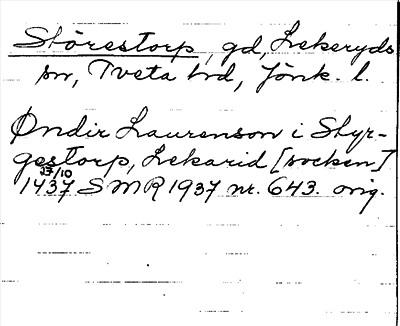 Störestorp, gd, Lekeryds
sn, Tveta hd, Jönk. l.
Øndir Laurenson i Styr-
gestorp, Lekarid [socken]
27/10
1437 SMR 1937 nr. 643. orig.